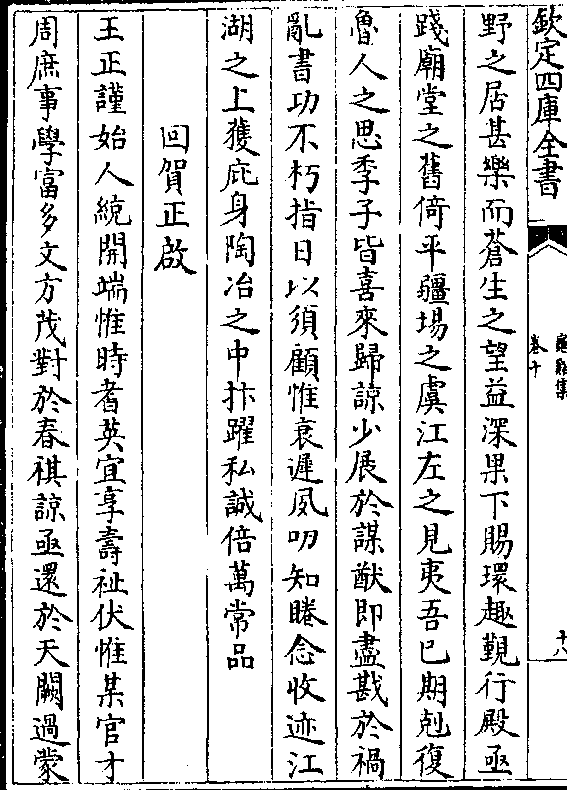 欽定四庫全書
卷十
十八
野之居甚樂而蒼生之望益深果下賜環趣覲行殿亟
踐廟堂之舊倚平疆場之虞江左之見夷吾已期剋復
魯人之思季子皆喜來歸諒少展於謀猷即盡戡於禍
亂書功不朽指日以須顧惟衰遲夙叨知睠念收迹江
湖之上獲庇身陶冶之中抃躍私誠倍萬常品
回賀正啟
王正謹始人統開端惟時耆英宜享壽祉伏惟某官才
周庶事學富多文方茂對於春祺諒亟還於天闕過蒙